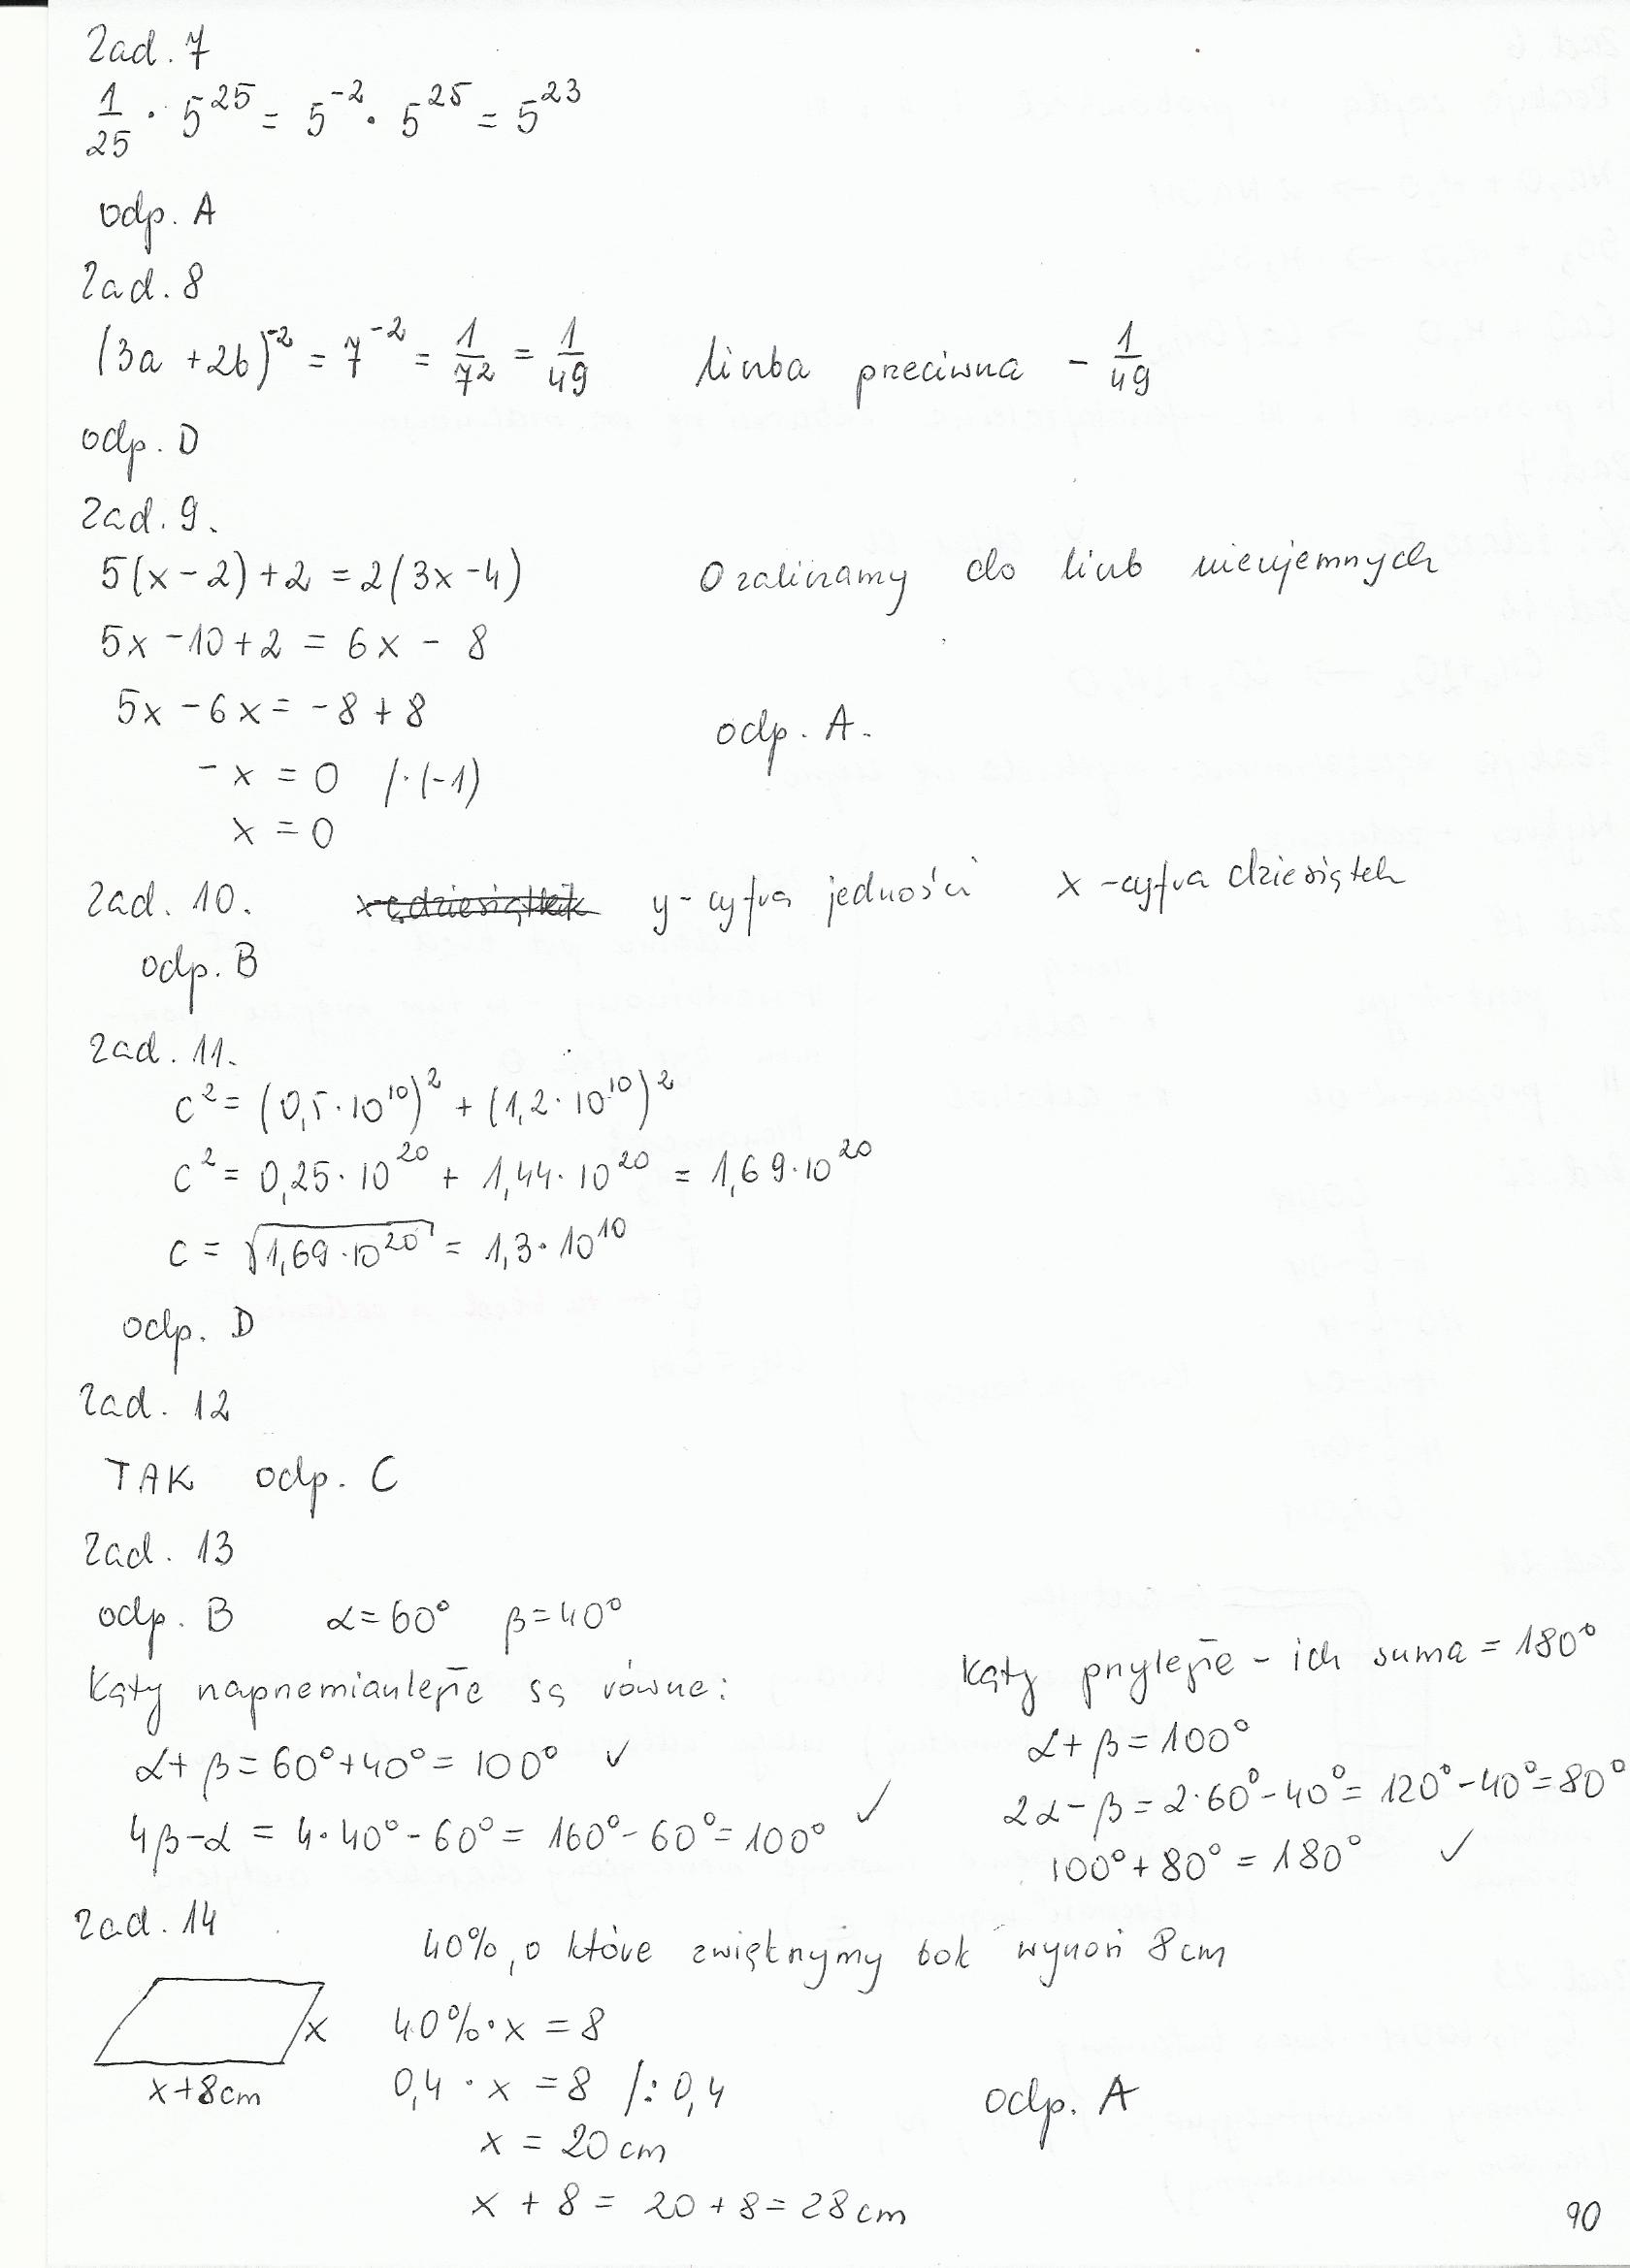 Zad. 7
1/25 · 5^25 = 5^-2 · 5^25 = 5^23
odp. A
Zad. 8
(3a + 2b)^-2 = 7^-2 = 1/7^2 = 1/49   liczba przeciwna - 1/49
odp. D
Zad. 9.
5(x - 2) + 2 = 2(3x - 4)   0 zaliczamy do liczb nieujemnych
5x - 10 + 2 = 6x - 8
5x - 6x = -8 + 8
odp. A.
- x = 0 /·(-1)
x = 0
Zad. 10.   y - cyfra jedności   x - cyfra dziesiątek
odp. B
Zad. 11.
c^2 = (0,5·10^10)^2 + (1,2·10^10)^2
c^2 = 0,25·10^20 + 1,44·10^20 = 1,69·10^20
c = √(1,69·10^20) = 1,3·10^10
odp. D
Zad. 12
TAK odp. C
Zad. 13
odp. B   α = 60°   β = 40°
Kąty naprzemianległe są równe:
α + β = 60° + 40° = 100° ✓
4β - α = 4·40° - 60° = 160° - 60° = 100° ✓
Kąty przyległe - ich suma = 180°
α + β = 100°
2α - β = 2·60° - 40° = 120° - 40° = 80°
100° + 80° = 180° ✓
Zad. 14
40%, o które zwiększymy bok wynosi 8 cm
x
x + 8 cm
40%·x = 8
0,4 · x = 8 /: 0,4
x = 20 cm
x + 8 = 20 + 8 = 28 cm
odp. A
90